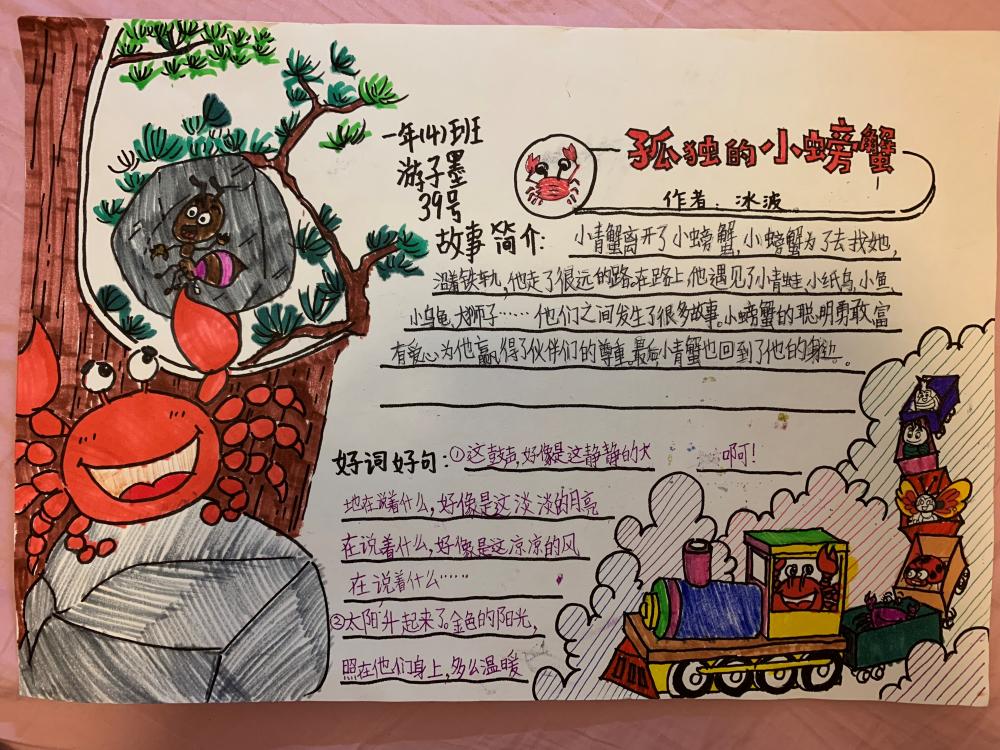 一年(4)班
游子墨
39号
孤独的小螃蟹
作者：冰波
故事简介：小青蟹离开了小螃蟹,小螃蟹为了去找她,
沿着铁轨,他走了很远的路。在路上他遇见了小青蛙,小纸鸟,小鱼,
小乌龟,大狮子……他们之间发生了很多故事。小螃蟹的聪明勇敢富
有爱心为他赢得了伙伴们的尊重。最后小青蟹也回到了他的身边。
好词好句：①这鼓声,好像是这静静的大
地在说着什么,好像是这淡淡的月亮
在说着什么,好像是这凉凉的风
在说着什么……
啊！
②太阳升起来了。金色的阳光,
照在他们身上,多么温暖